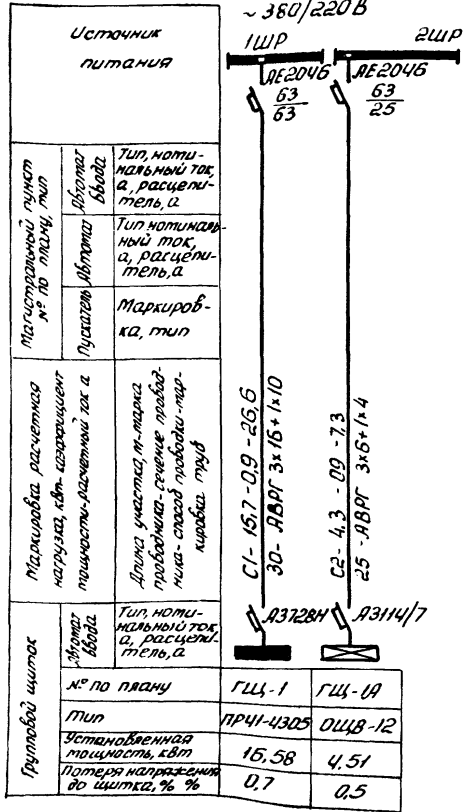 ~380/220В
Источник
питания
1ШР
2ШР
АЕ2046
63
63
АЕ2046
63
25
Магистральный пункт
№ по плану, тип
Автомат
ввода
Тип, номи-
нальный ток,
а, расцепи-
тель, а
Автомат
Тип номиналь-
ный ток,
а, расцепи-
тель, а
Пускатель
Маркиров-
ка, тип
Маркировка расчетная
нагрузка, квт- коэффициент
мощности-расчетный ток а
Длина участка, м-марка
проводника-сечение провод-
ника-способ проводки-мар-
кировка труб
С1- 15,7-0,9 -26,6
30- АВРГ 3х16+1х10
С2- 4,3 - 0,9 -7,3
25 - АВРГ 3х6+1х4
Групповой щиток
Автомат
ввода
Тип, номи-
нальный ток
а, расцепи-
тель, а
А3728Н
А3114/7
№ по плану
ГЩ-1
ГЩ-1А
Тип
ПР41-4305
ОЩВ-12
Установленная
мощность, квт
16,58
4,51
Потеря напряжения
до щитка, % %
0,7
0,5